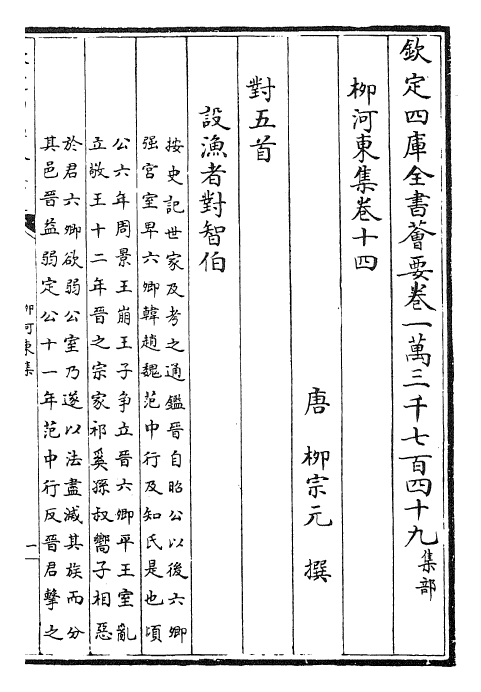 欽定四庫全書薈要卷一萬三千七百四十九集部
柳河東集卷十四
唐 柳宗元 撰
對五首
設漁者對智伯
按史記世家及考之通鑑晉自昭公以後六卿
强宫室卑六卿韓趙魏范中行及知氏是也頃
公六年周景王崩王子争立晉六卿平王室亂
立敬王十二年晉之宗家祁奚孫叔嚮子相惡
於君六卿欲弱公室乃遂以法盡滅其族而分
其邑晉益弱定公十一年范中行反晉君擊之
柳河東集
一